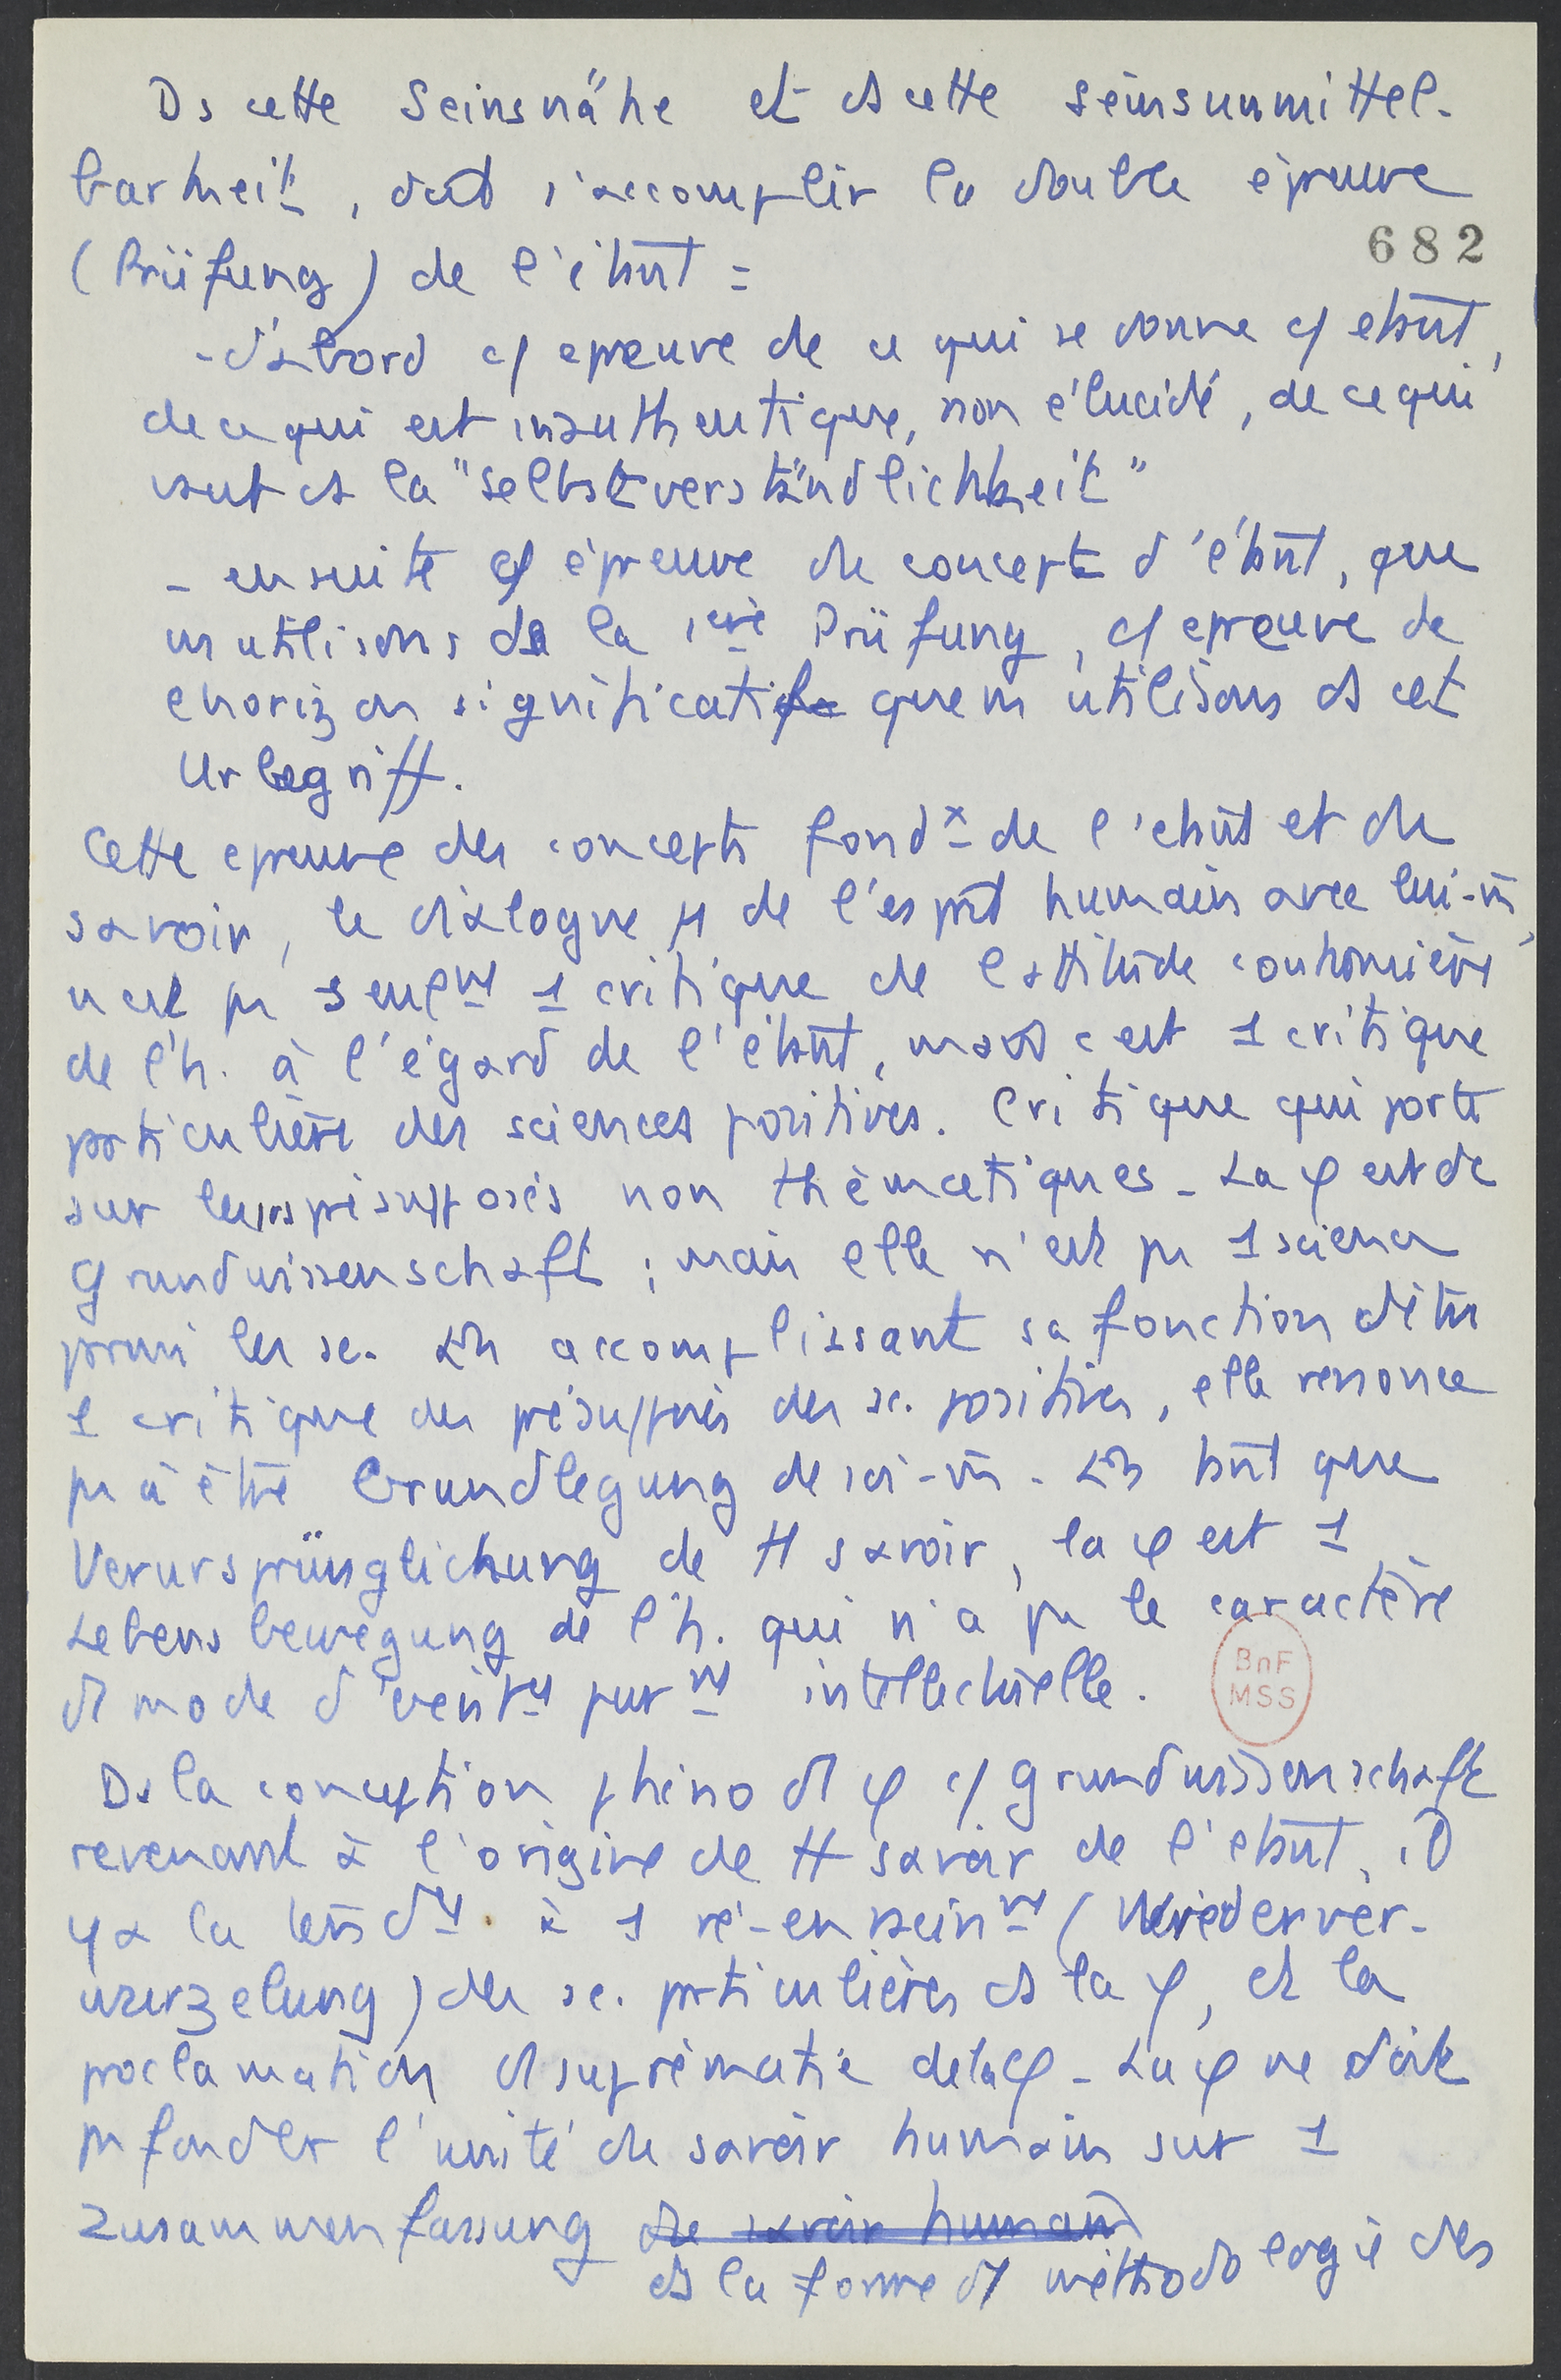 Ds cette Seinsnähe et ds cette Seinsunmittel-
barkeit, doit s'accomplir la double épreuve
682
(Prüfung) de l'étant :
- d'abord c/ epreuve de ce qui se donne c/ etant,
de ce qui est inauthentique, non élucidé, de ce qui
vaut ds la "Selbstverständlichkeit"
- ensuite c/ épreuve du concept d'étant, que
ns utilisons ds la 1ère Prüfung, c/ epreuve de
l'horizon significatif que ns utilisons ds cet
Urbegriff.
Cette epreuve des concepts fondx de l'etant et du
savoir, ce dialogue de l'esprit humain avec lui-m̄,
n'est pas seulmt 1 critique de l'attitude coutumière
de l'h. à l'égard de l'étant, mais c'est 1 critique
particulière des sciences positives. Critique qui porte
sur leurs présupposés non thématiques - La φ est de
Grundwissenschaft ; mais elle n'est pas 1 science
parmi les sc. En accomplissant sa fonction d'être
1 critique des présupposés des sc. positives, elle renonce
pas à être Grundlegung de soi-m̄. En tant que
Verursprünglichung de tt savoir, la φ est 1
Lebensbewegung de l'h. qui n'a pas le caractère
d'1 mode d' purmt intellectuelle.
BnF
MSS
Ds la conception phéno d'1 φ c/ Grundwissenschaft
revenant à l'origine de tt savoir de l'etant, il
y a la tendce à 1 ré-enracinmt (Wiederver-
wurzelung) des sc. particulières ds la φ, et la
proclamation d'1 suprématie de la φ - La φ ne doit
pas fonder l'unité du savoir humain sur 1
Zusammenfassung du savoir humain
ds la forme d'1 méthodologie des